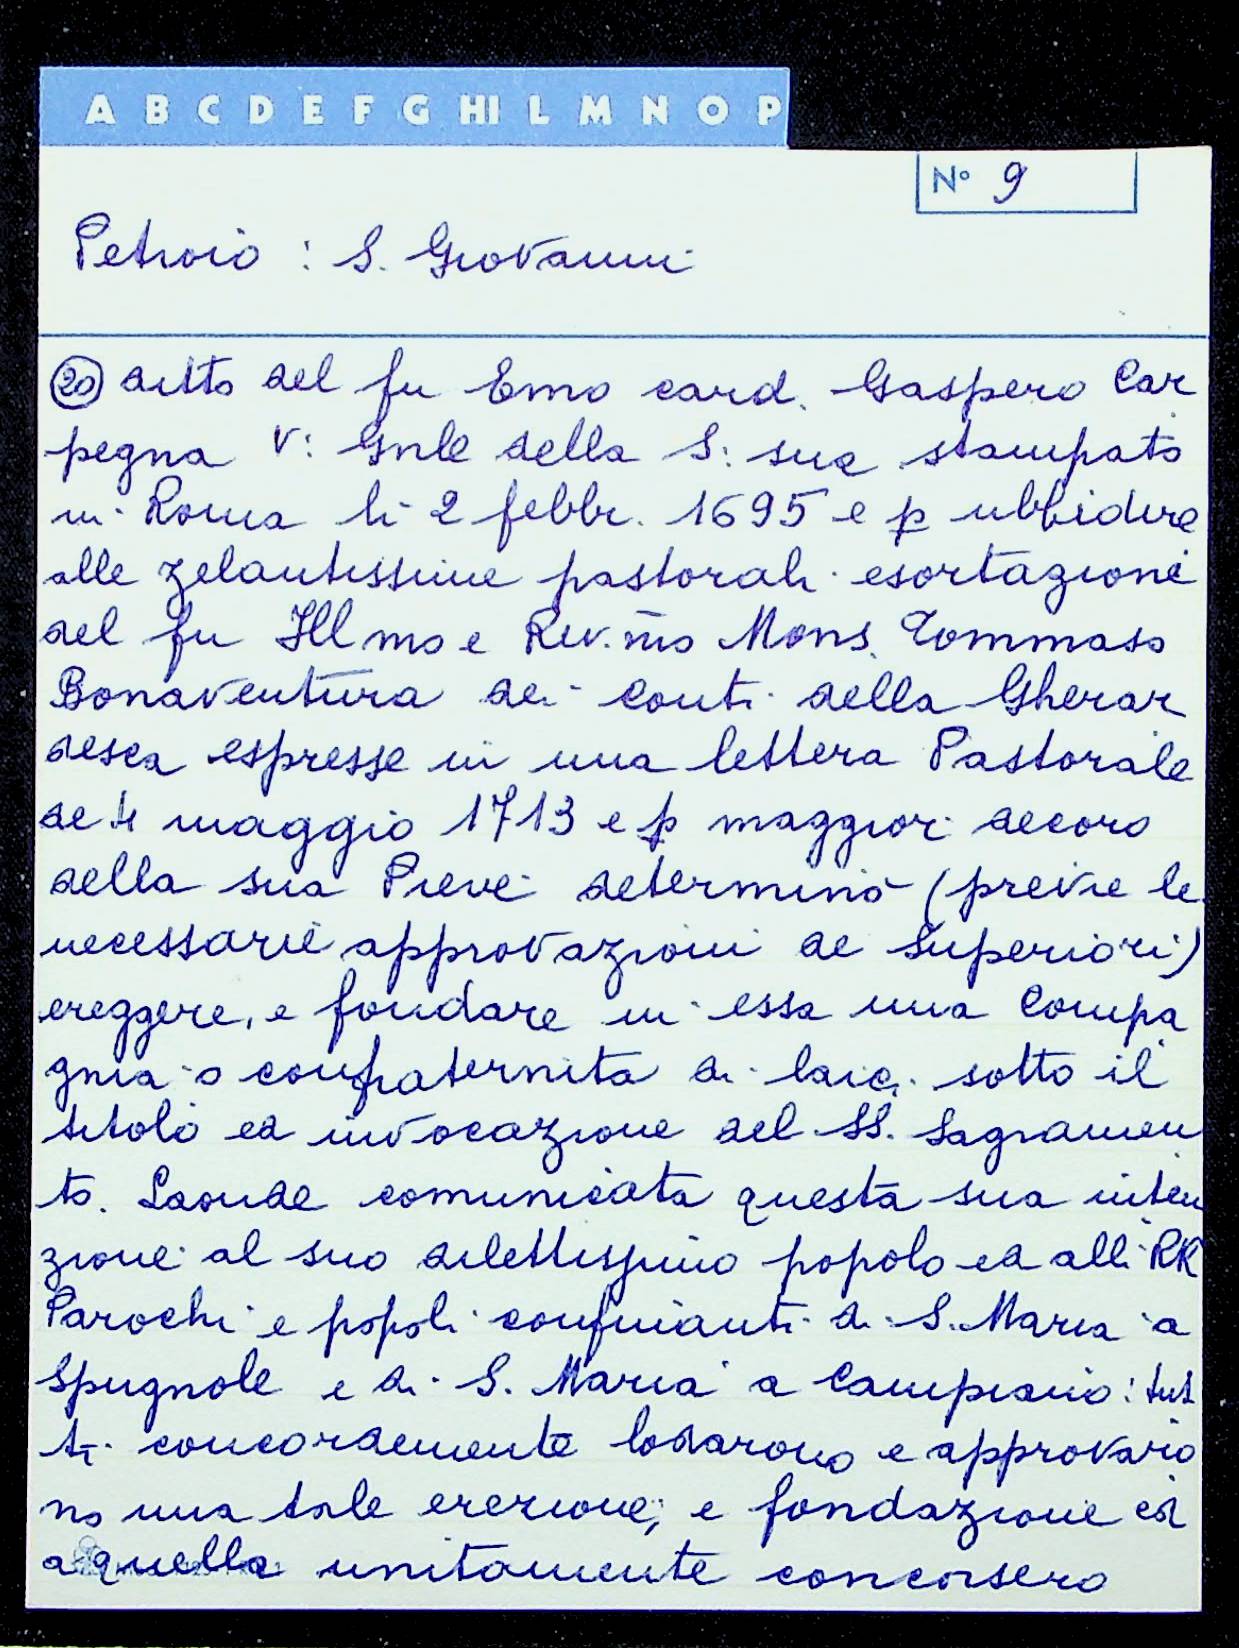 A B C D E F G HI L M N O P
N° 9
Petroio : S. Giovanni
20 ditto del fu Emo card. Gaspero Car
pegna V: Gnle della S: sua stampato
in Roma li 2 febbr. 1695 e p ubbidire
alle zelantissime pastorali esortazioni
del fu Illmo e Rev.mo Mons. Tommaso
Bonaventura dei conti della Gherar
desca espresse in una lettera Pastorale
de 4 maggio 1713 e p maggior decoro
della sua Pieve determinò (previe le
necessarie approvazioni de Superiori)
ereggere, e fondare in essa una Compa
gnia o confraternita di laici sotto il
titolo ed invocazione del SS. Sagramen
to. Laonde comunicata questa sua inten
zione al suo dilettissimo popolo ed alli RR
Parochi e popoli confinanti di S. Maria a
Spugnole e di S. Maria a Campiano: tut
ti concordemente lodarono e approvaro
no una tale erezione, e fondazione ed
a quella unitamente concorsero